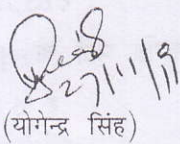 27/11/19
(योगेन्द्र सिंह)